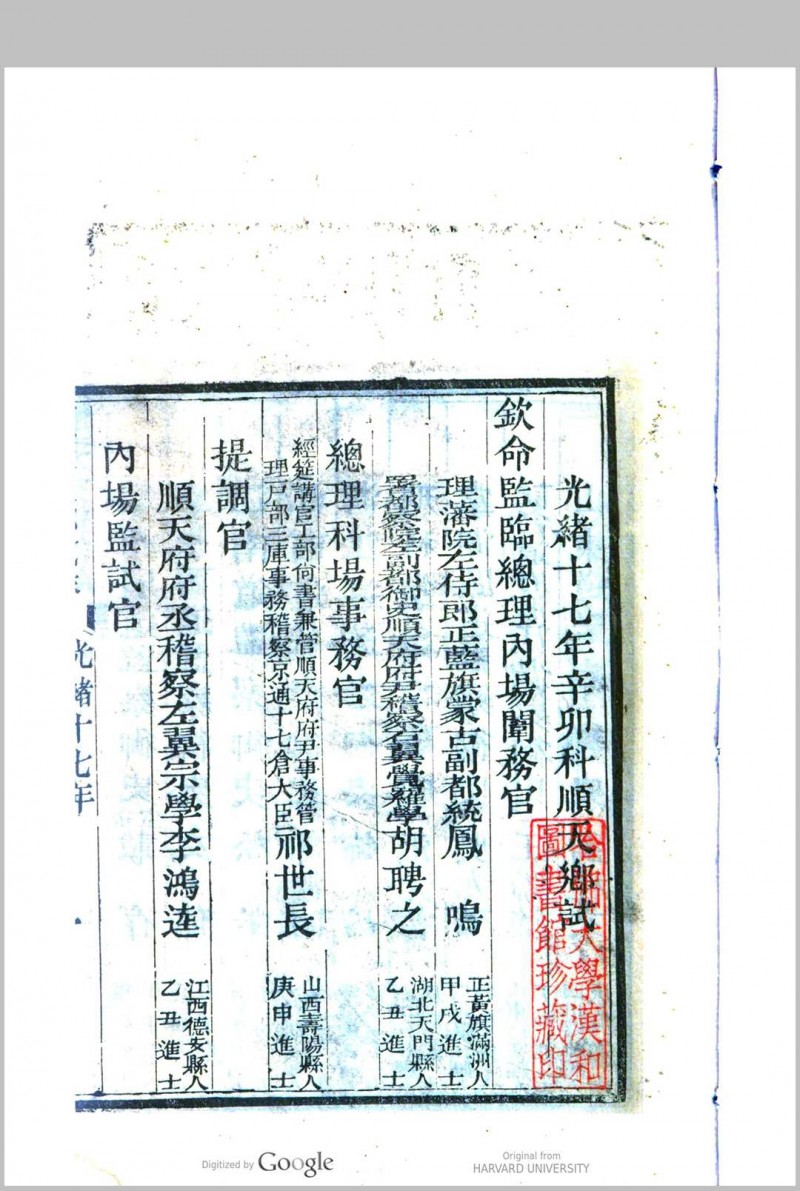 光緒十七年辛卯科順天鄉試
欽命監臨總理內場闈務官
理藩院左侍郎正藍旗蒙古副都統鳳 鳴 正黃旗滿洲人 甲戌進士
署都察院左副都御史順天府府尹稽察右翼覺羅學胡聘之 湖北天門縣人 乙丑進士
總理科場事務官
經筵講官工部尙書兼管順天府府尹事務管
理戶部三庫事務稽察京通十七倉大臣祁世長 山西壽陽縣人 庚申進士
提調官
順天府府丞稽察左翼宗學李鴻逵 江西德安縣人 乙丑進士
內場監試官
光緒十七年
一
哈佛大學漢和
圖書館珍藏印
Digitized by Google
Original from
HARVARD UNIVERSITY